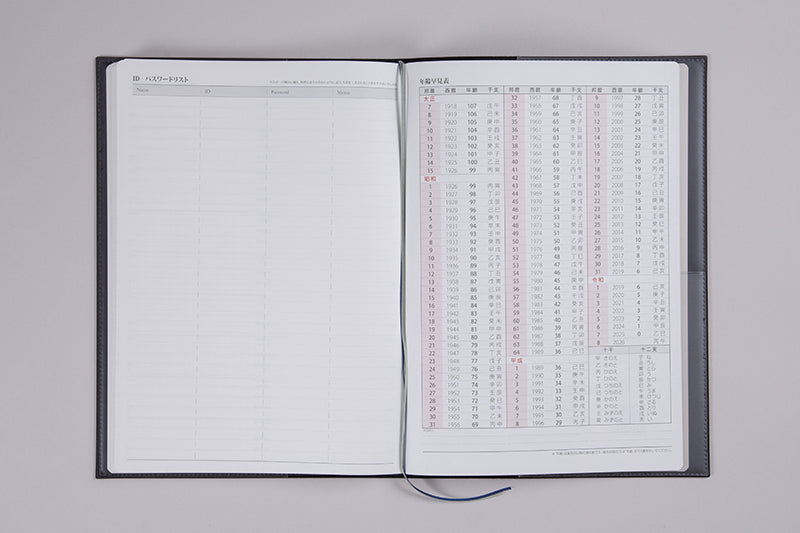 ID・パスワードリスト
Name ID Password Memo
年齢早見表
邦暦 西暦 年齢 干支
大正
7 1918 107 戊午
8 1919 106 己未
9 1920 105 庚申
10 1921 104 辛酉
11 1922 103 壬戌
12 1923 102 癸亥
13 1924 101 甲子
14 1925 100 乙丑
15 1926 99 丙寅
昭和
1 1926 99 丙寅
2 1927 98 丁卯
3 1928 97 戊辰
4 1929 96 己巳
5 1930 95 庚午
6 1931 94 辛未
7 1932 93 壬申
8 1933 92 癸酉
9 1934 91 甲戌
10 1935 90 乙亥
11 1936 89 丙子
12 1937 88 丁丑
13 1938 87 戊寅
14 1939 86 己卯
15 1940 85 庚辰
16 1941 84 辛巳
17 1942 83 壬午
18 1943 82 癸未
19 1944 81 甲申
20 1945 80 乙酉
21 1946 79 丙戌
22 1947 78 丁亥
23 1948 77 戊子
24 1949 76 己丑
25 1950 75 庚寅
26 1951 74 辛卯
27 1952 73 壬辰
28 1953 72 癸巳
29 1954 71 甲午
30 1955 70 乙未
31 1956 69 丙申
邦暦 西暦 年齢 干支
32 1957 68 丁酉
33 1958 67 戊戌
34 1959 66 己亥
35 1960 65 庚子
36 1961 64 辛丑
37 1962 63 壬寅
38 1963 62 癸卯
39 1964 61 甲辰
40 1965 60 乙巳
41 1966 59 丙午
42 1967 58 丁未
43 1968 57 戊申
44 1969 56 己酉
45 1970 55 庚戌
46 1971 54 辛亥
47 1972 53 壬子
48 1973 52 癸丑
49 1974 51 甲寅
50 1975 50 乙卯
51 1976 49 丙辰
52 1977 48 丁巳
53 1978 47 戊午
54 1979 46 己未
55 1980 45 庚申
56 1981 44 辛酉
57 1982 43 壬戌
58 1983 42 癸亥
59 1984 41 甲子
60 1985 40 乙丑
61 1986 39 丙寅
62 1987 38 丁卯
63 1988 37 戊辰
64 1989 36 己巳
平成
1 1989 36 己巳
2 1990 35 庚午
3 1991 34 辛未
4 1992 33 壬申
5 1993 32 癸酉
6 1994 31 甲戌
7 1995 30 乙亥
8 1996 29 丙子
邦暦 西暦 年齢 干支
9 1997 28 丁丑
10 1998 27 戊寅
11 1999 26 己卯
12 2000 25 庚辰
13 2001 24 辛巳
14 2002 23 壬午
15 2003 22 癸未
16 2004 21 甲申
17 2005 20 乙酉
18 2006 19 丙戌
19 2007 18 丁亥
20 2008 17 戊子
21 2009 16 己丑
22 2010 15 庚寅
23 2011 14 辛卯
24 2012 13 壬辰
25 2013 12 癸巳
26 2014 11 甲午
27 2015 10 乙未
28 2016 9 丙申
29 2017 8 丁酉
30 2018 7 戊戌
31 2019 6 己亥
令和
1 2019 6 己亥
2 2020 5 庚子
3 2021 4 辛丑
4 2022 3 壬寅
5 2023 2 癸卯
6 2024 1 甲辰
7 2025 0 乙巳
8 2026 丙午
十干 十二支
甲 きのえ
乙 きのと
丙 ひのえ
丁 ひのと
戊 つちのえ
己 つちのと
庚 かのえ
辛 かのと
壬 みずのえ
癸 みずのと
子 ね
丑 うし
寅 とら
卯 う
辰 たつ
巳 み
午 うま
未 ひつじ
申 さる
酉 とり
戌 いぬ
亥 い